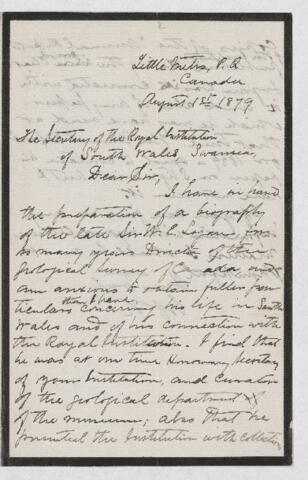 Little Metis, P. Q
Canada
August 1st 1879
The Secretary of the Royal Institution
of South Wales, Swansea,
Dear Sir,
I have in hand
the preparation of a biography
of the late Sir W. E. Logan, for
so many years Director of the
Geological Survey of Canada and
am anxious to obtain fuller par
ticulars than I have concerning his life in South
Wales and of his connection with
the Royal Institution. I find that
he was at one time Honorary Secretary
of your Institution, and Curator
of the geological department
of the museum; also that he
presented the Institution with collections